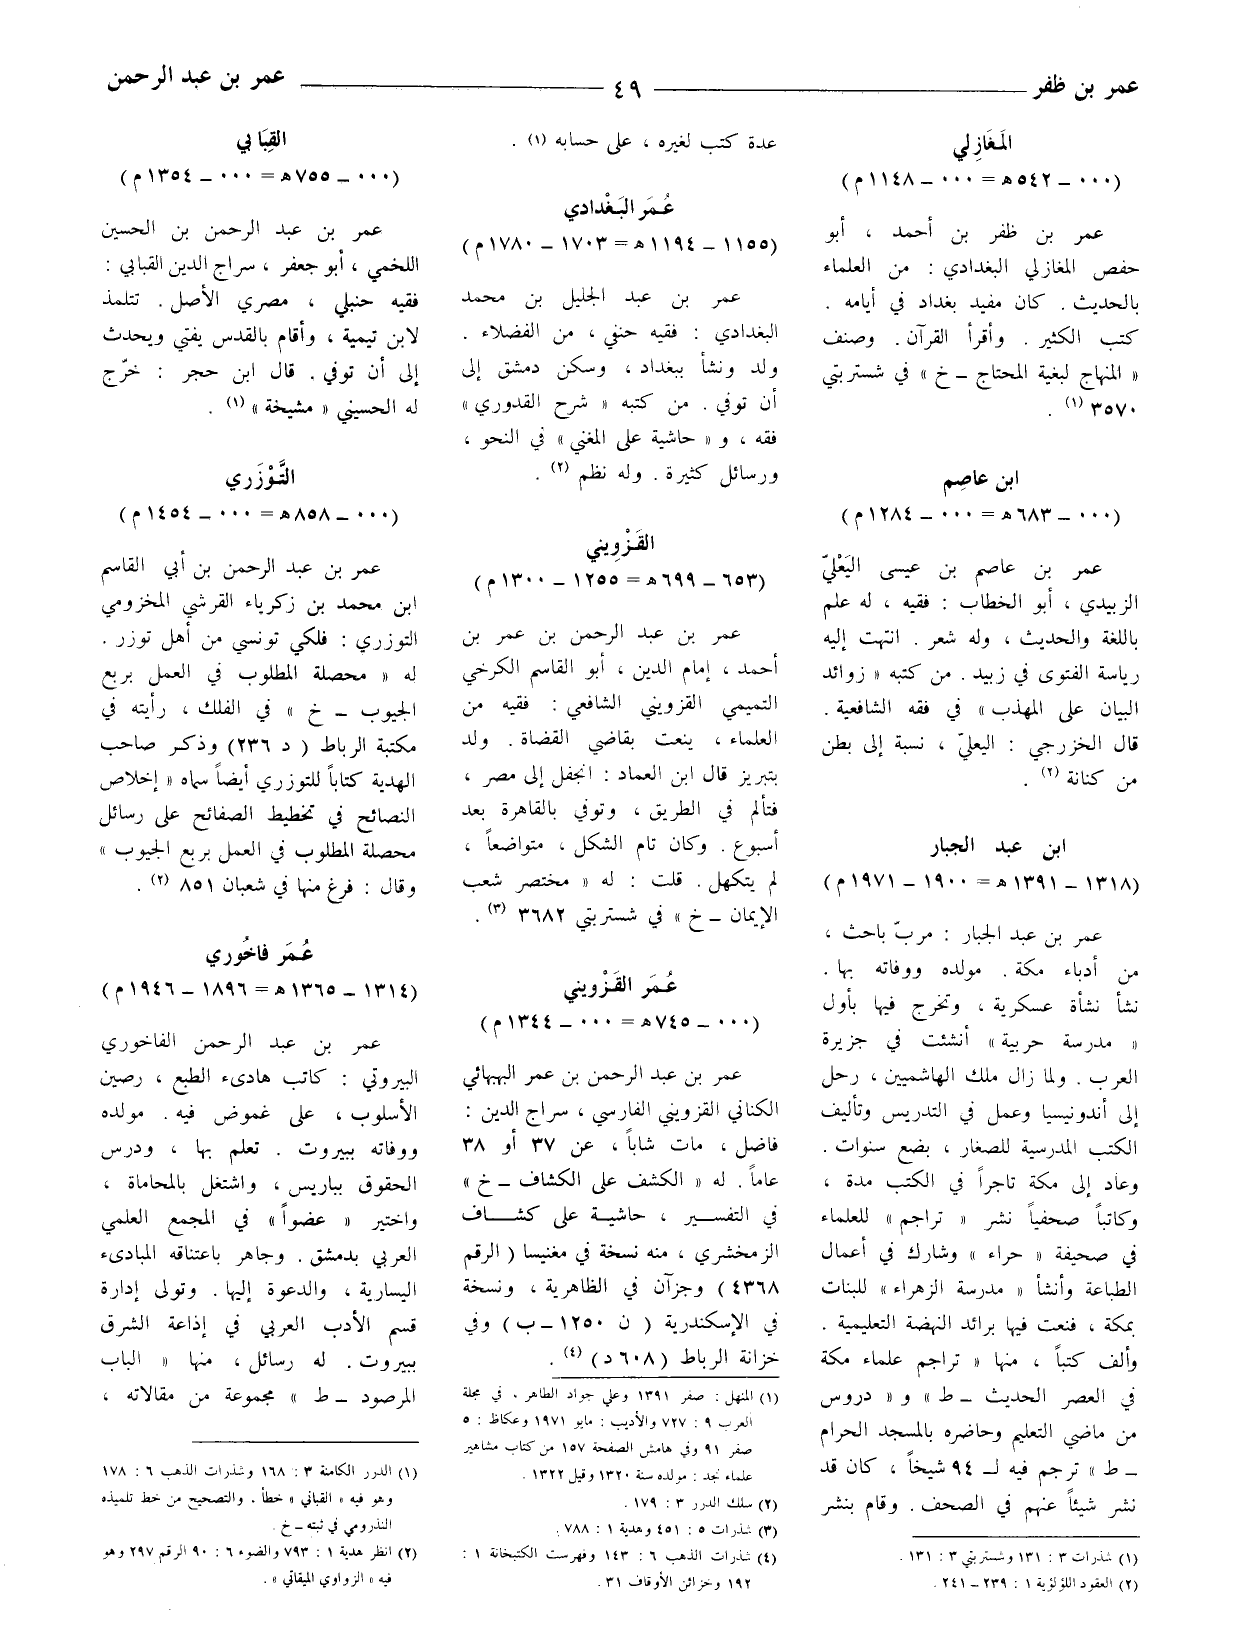 عمر بن ظفر ٤٩ عمر بن عبد الرحمن
المَغَازِلي
(٠٠٠ ـ ٥٤٢ هـ = ٠٠٠ ـ ١١٤٨ م)
عمر بن ظفر بن أحمد ، أبو
حفص المغازلي البغدادي : من العلماء
بالحديث . كان مفيد بغداد في أيامه .
كتب الكثير . وأقرأ القرآن . وصنف
« المنهاج لبغية المحتاج ـ خ » في شستربتي
٣٥٧٠ (١) .
ابن عاصِم
(٠٠٠ ـ ٦٨٣ هـ = ٠٠٠ ـ ١٢٨٤ م)
عمر بن عاصم بن عيسى اليَعْليّ
الزبيدي ، أبو الخطاب : فقيه ، له علم
باللغة والحديث ، وله شعر . انتهت إليه
رياسة الفتوى في زبيد . من كتبه « زوائد
البيان على المهذب » في فقه الشافعية .
قال الخزرجي : اليعليّ ، نسبة إلى بطن
من كنانة (٢) .
ابن عبد الجبار
(١٣١٨ ـ ١٣٩١ هـ = ١٩٠٠ ـ ١٩٧١ م)
عمر بن عبد الجبار : مربّ باحث ،
من أدباء مكة . مولده ووفاته بها .
نشأ نشأة عسكرية ، وتخرج فيها بأول
« مدرسة حربية » أنشئت في جزيرة
العرب . ولما زال ملك الهاشميين ، رحل
إلى أندونيسيا وعمل في التدريس وتأليف
الكتب المدرسية للصغار ، بضع سنوات .
وعاد إلى مكة تاجراً في الكتب مدة ،
وكاتباً صحفياً نشر « تراجم » للعلماء
في صحيفة « حراء » وشارك في أعمال
الطباعة وأنشأ « مدرسة الزهراء » للبنات
بمكة ، فنعت فيها برائد النهضة التعليمية .
وألف كتباً ، منها « تراجم علماء مكة
في العصر الحديث ـ ط » و « دروس
من ماضي التعليم وحاضره بالمسجد الحرام
ـ ط » ترجم فيه لـ ٩٤ شيخاً ، كان قد
نشر شيئاً عنهم في الصحف . وقام بنشر
(١) شذرات ٣ : ١٣١ وشستربتي ٣ : ١٣١ .
(٢) العقود اللؤلؤية ١ : ٢٣٩ ـ ٢٤١ .
عدة كتب لغيره ، على حسابه (١) .
عُمَر البَغْدادي
(١١٥٥ ـ ١١٩٤ هـ = ١٧٠٣ ـ ١٧٨٠ م)
عمر بن عبد الجليل بن محمد
البغدادي : فقيه حنفي ، من الفضلاء .
ولد ونشأ ببغداد ، وسكن دمشق إلى
أن توفي . من كتبه « شرح القدوري »
فقه ، و « حاشية على المغني » في النحو ،
ورسائل كثيرة . وله نظم (٢) .
القَزْوِيني
(٦٥٣ ـ ٦٩٩ هـ = ١٢٥٥ ـ ١٣٠٠ م)
عمر بن عبد الرحمن بن عمر بن
أحمد ، إمام الدين ، أبو القاسم الكرخي
التميمي القزويني الشافعي : فقيه من
العلماء ، ينعت بقاضي القضاة . ولد
بتبريز قال ابن العماد : انجفل إلى مصر ،
فتألم في الطريق ، وتوفي بالقاهرة بعد
أسبوع . وكان تام الشكل ، متواضعاً ،
لم يتكهل . قلت : له « مختصر شعب
الإيمان ـ خ » في شستربتي ٣٦٨٢ (٣) .
عُمَر القَزْويني
(٠٠٠ ـ ٧٤٥ هـ = ٠٠٠ ـ ١٣٤٤ م)
عمر بن عبد الرحمن بن عمر البهبهائي
الكناني القزويني الفارسي ، سراج الدين :
فاضل ، مات شاباً ، عن ٣٧ أو ٣٨
عاماً . له « الكشف على الكشاف ـ خ »
في التفسير ، حاشية على كشاف
الزمخشري ، منه نسخة في مغنيسا ( الرقم
٤٣٦٨ ) وجزآن في الظاهرية ، ونسخة
في الإسكندرية ( ن ١٢٥٠ ـ ب ) وفي
خزانة الرباط (٦٠٨ د) (٤) .
(١) المنهل : صفر ١٣٩١ وعلي جواد الطاهر ، في مجلة
العرب ٩ : ٧٢٧ والأديب : مايو ١٩٧١ وعكاظ : ٥
صفر ٩١ وفي هامش الصفحة ١٥٧ من كتاب مشاهير
علماء نجد : مولده سنة ١٣٢٠ وقيل ١٣٢٢ .
(٢) سلك الدرر ٣ : ١٧٩ .
(٣) شذرات ٥ : ٤٥١ وهدية ١ : ٧٨٨ .
(٤) شذرات الذهب ٦ : ١٤٣ وفهرست الكتبخانة ١ :
١٩٢ وخزائن الأوقاف ٣١ .
القِبَابي
(٠٠٠ ـ ٧٥٥ هـ = ٠٠٠ ـ ١٣٥٤ م)
عمر بن عبد الرحمن بن الحسين
اللخمي ، أبو جعفر ، سراج الدين القبابي :
فقيه حنبلي ، مصري الأصل . تتلمذ
لابن تيمية ، وأقام بالقدس يفتي ويحدث
إلى أن توفي . قال ابن حجر : خرّج
له الحسيني « مشيخة » (١) .
التَّوْزَري
(٠٠٠ ـ ٨٥٨ هـ = ٠٠٠ ـ ١٤٥٤ م)
عمر بن عبد الرحمن بن أبي القاسم
ابن محمد بن زكرياء القرشي المخزومي
التوزري : فلكي تونسي من أهل توزر .
له « محصلة المطلوب في العمل بربع
الجيوب ـ خ » في الفلك ، رأيته في
مكتبة الرباط ( د ٢٣٦) وذكر صاحب
الهدية كتاباً للتوزري أيضاً سماه « إخلاص
النصائح في تخطيط الصفائح على رسائل
محصلة المطلوب في العمل بربع الجيوب »
وقال : فرغ منها في شعبان ٨٥١ (٢) .
عُمَر فاخُوري
(١٣١٤ ـ ١٣٦٥ هـ = ١٨٩٦ ـ ١٩٤٦ م)
عمر بن عبد الرحمن الفاخوري
البيروتي : كاتب هادىء الطبع ، رصين
الأسلوب ، على غموض فيه . مولده
ووفاته ببيروت . تعلم بها ، ودرس
الحقوق بباريس ، واشتغل بالمحاماة ،
واختير « عضواً » في المجمع العلمي
العربي بدمشق . وجاهر باعتناقه المبادىء
اليسارية ، والدعوة إليها . وتولى إدارة
قسم الأدب العربي في إذاعة الشرق
ببيروت . له رسائل ، منها « الباب
المرصود ـ ط » مجموعة من مقالاته ،
(١) الدرر الكامنة ٣ : ١٦٨ وشذرات الذهب ٦ : ١٧٨
وهو فيه « القباني » خطأ . والتصحيح من خط تلميذه
النذرومي في ثبته ـ خ .
(٢) انظر هدية ١ : ٧٩٣ والضوء ٦ : ٩٠ الرقم ٢٩٧ وهو
فيه « الزواوي الميقاتي » .